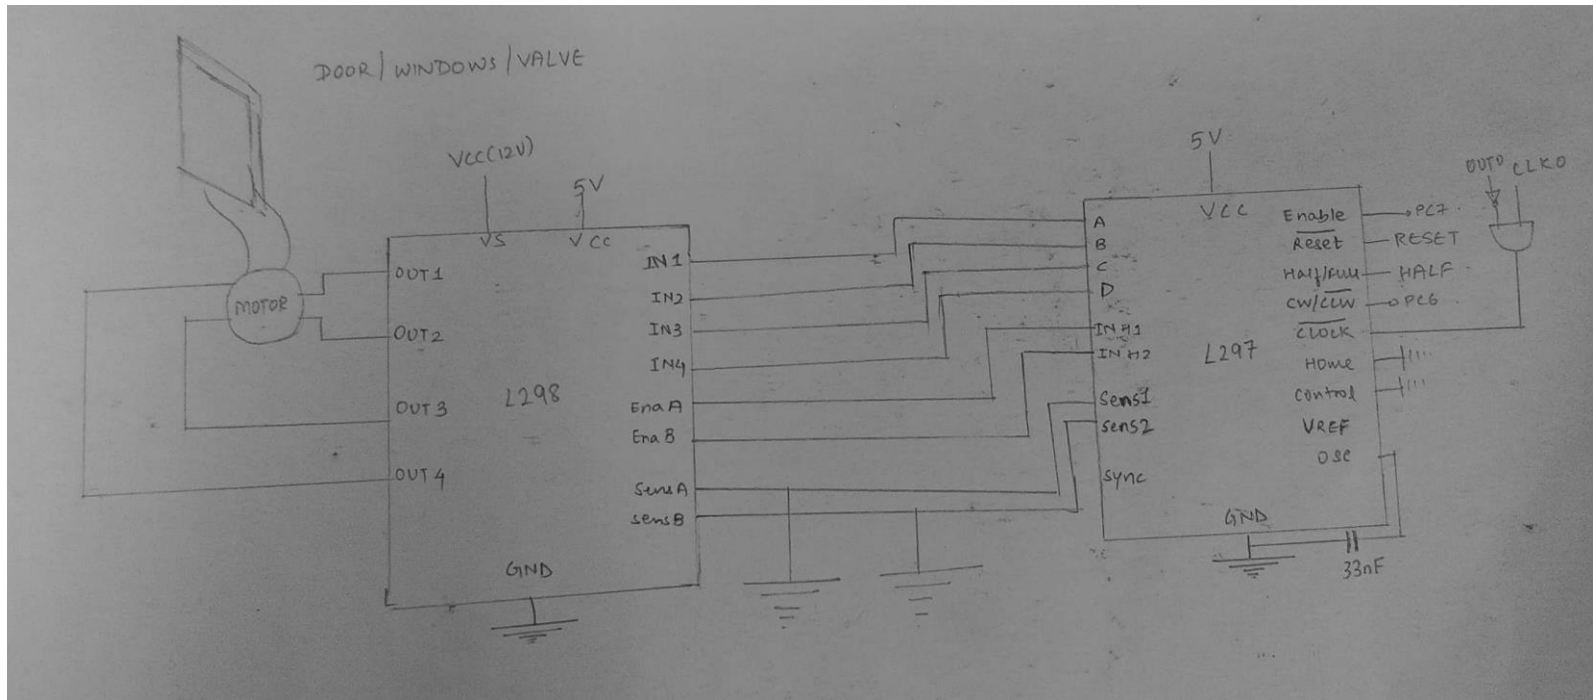 DOOR/WINDOWS/VALVE
VCC(12V)
5V
VS
VCC
MOTOR
OUT1
OUT2
OUT3
OUT4
L298
IN1
IN2
IN3
IN4
EnaA
EnaB
SensA
SensB
GND
5V
VCC
A
B
C
D
INH1
INH2
Sens1
Sens2
Sync
L297
GND
Enable
Reset
Half/Full
CW/CCW
CLOCK
Home
Control
VREF
OSC
PC7
RESET
HALF
PC6
OUT0
CLK0
33nF